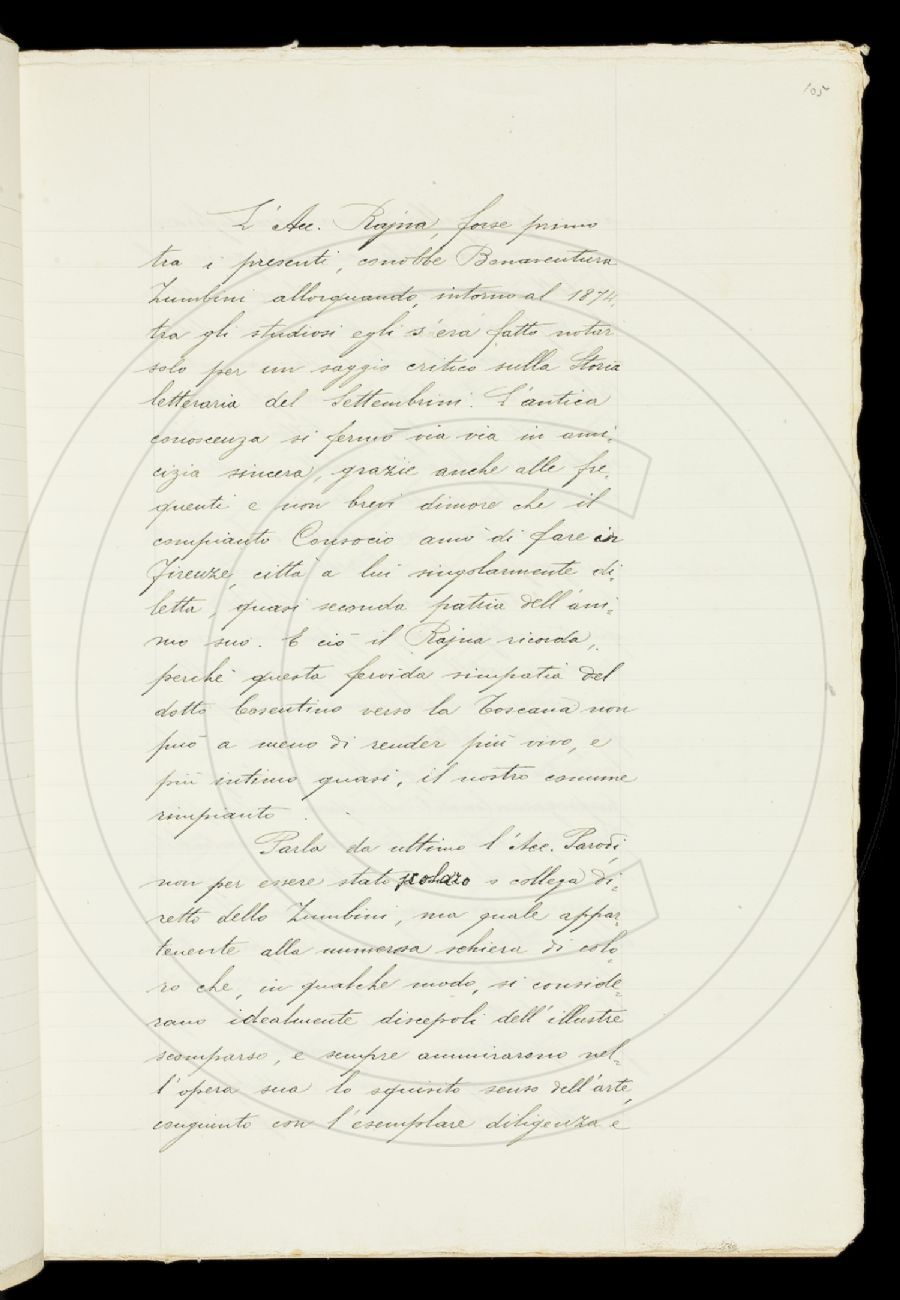 105
L'Acc. Rajna, forse primo
tra i presenti, conobbe Bonaventura
Zumbini allorquando, intorno al 1874,
tra gli studiosi egli s'era fatto notar
solo per un saggio critico sulla Storia
letteraria del Settembrini. L'antica
conoscenza si fermò via via in ami-
cizia sincera, grazie anche alle fre-
quenti e non brevi dimore che il
compianto Consocio amò di fare in
Firenze, città a lui singolarmente di-
letta, quasi seconda patria dell'ani-
mo suo. E ciò il Rajna ricorda,
perchè questa fervida simpatia del
dotto Cosentino verso la Toscana non
può a meno di render più vivo, e
più intimo quasi, il nostro comune
rimpianto.
Parla da ultimo l'Acc. Parodi,
non per essere stato scolaro o collega di-
retto dello Zumbini, ma quale appar-
tenente alla numerosa schiera di colo-
ro che, in qualche modo, si conside-
rano idealmente discepoli dell'illustre
scomparso, e sempre ammirarono nel-
l'opera sua lo squisito senso dell'arte,
congiunto con l'esemplare diligenza e